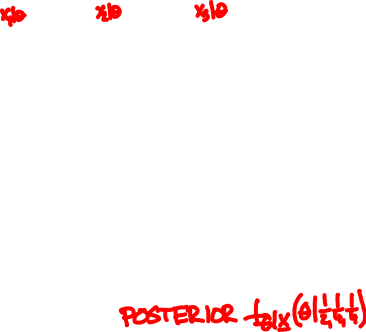 x₁|θ x₂|θ x₃|θ
POSTERIOR f_θ|X (θ | 1/2, 1/4, 1/4)